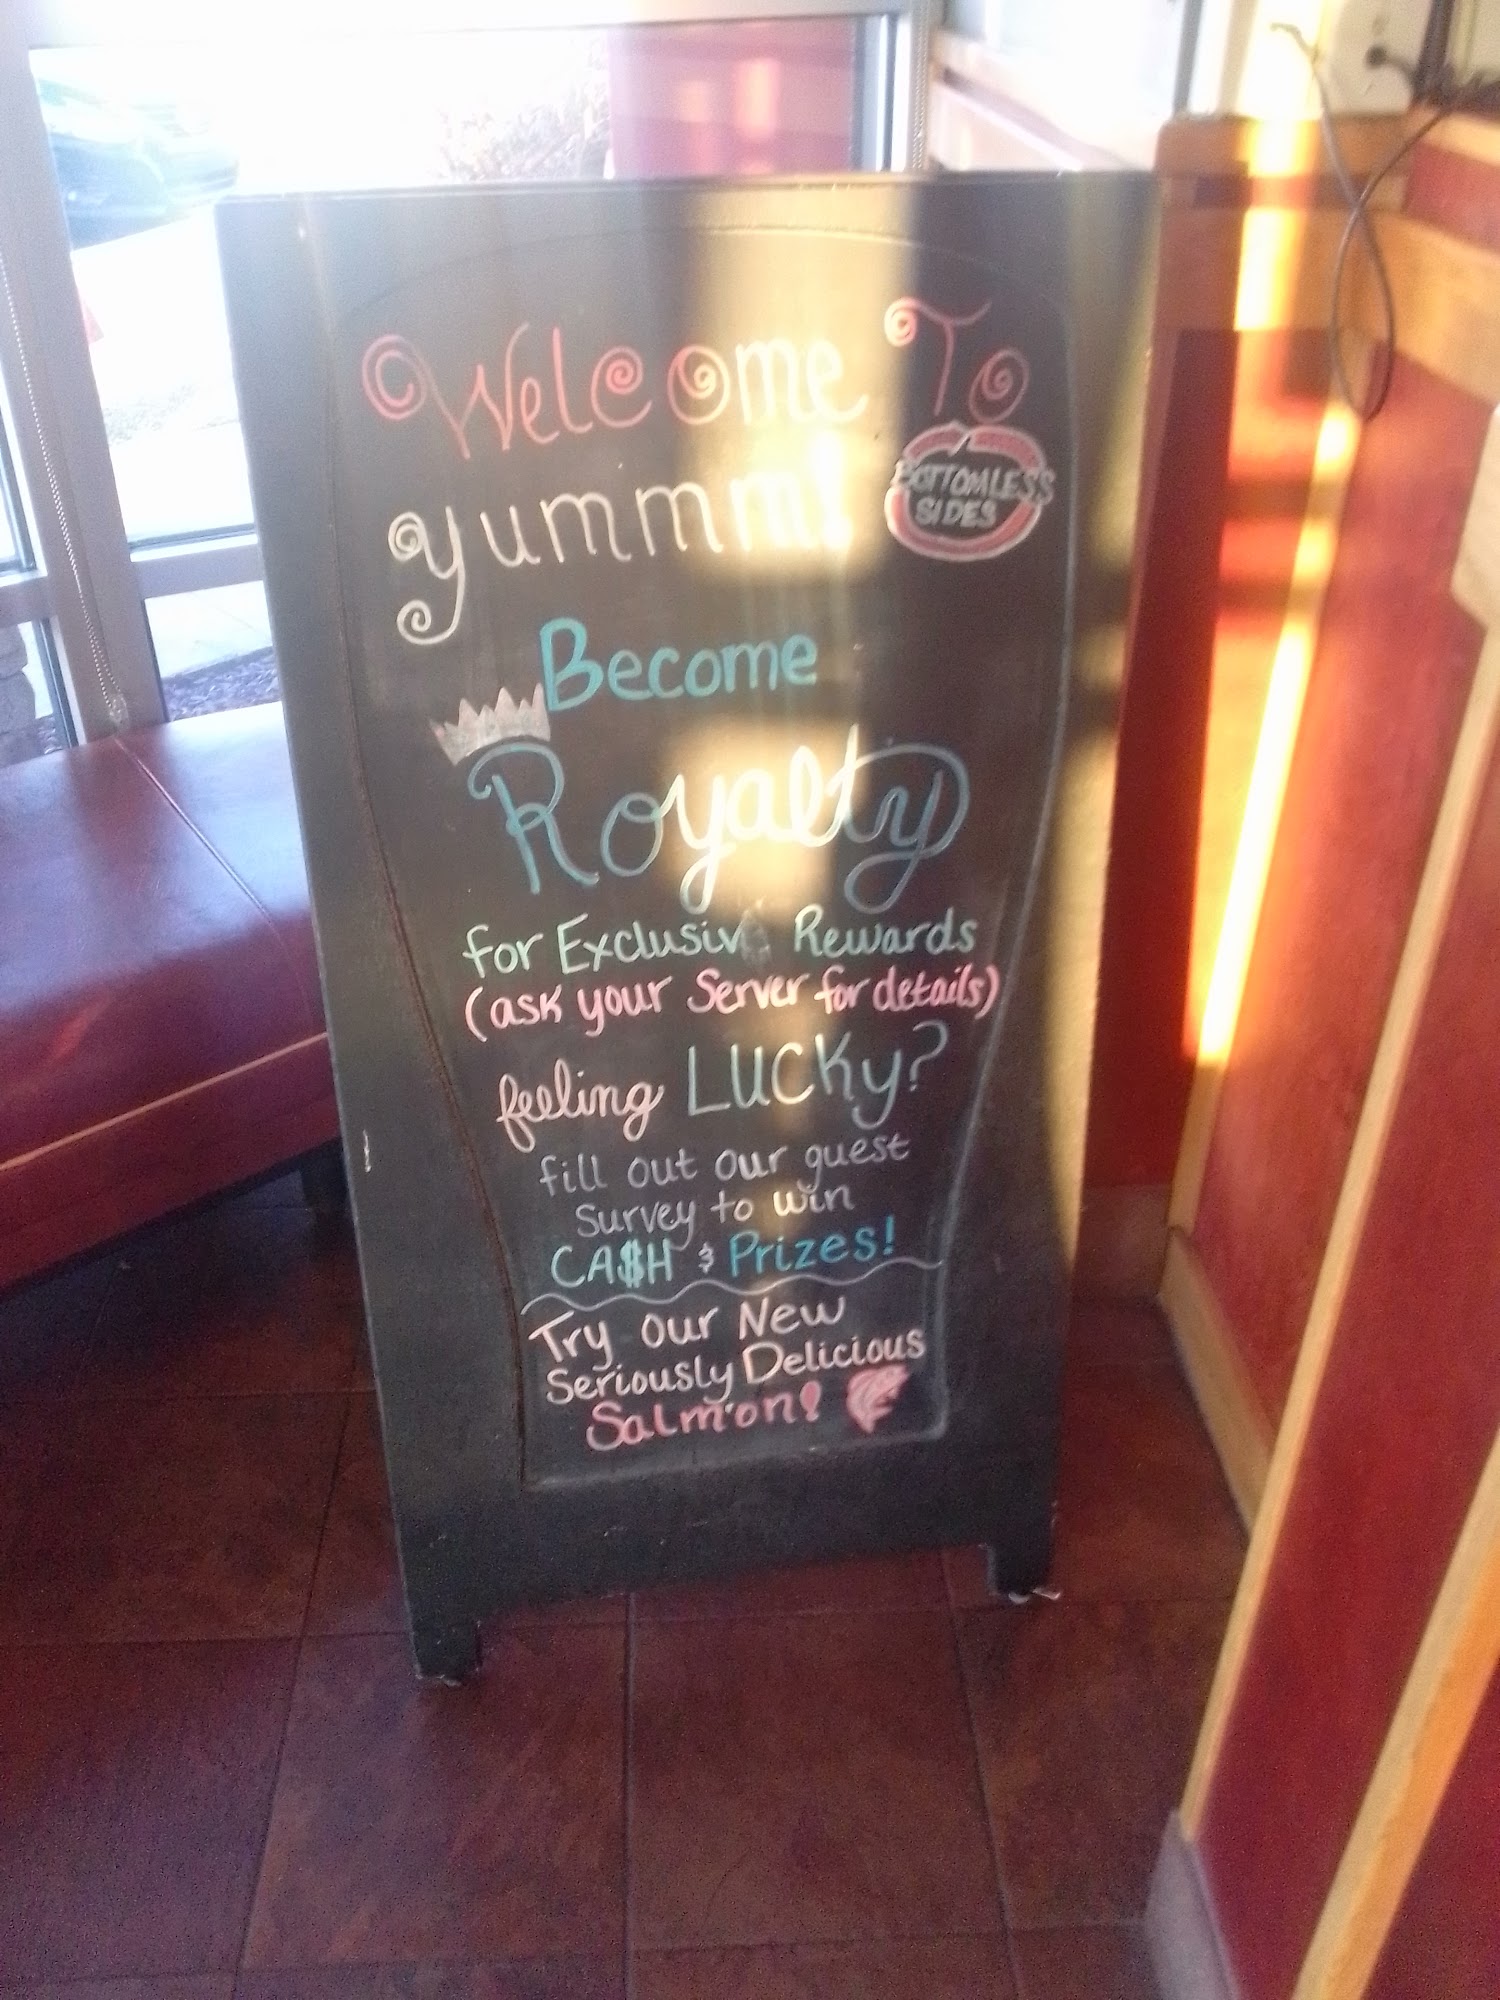 Welcome To
yummm!
BOTTOMLESS
SIDES
Become
Royalty
for Exclusive Rewards
(ask your Server for details)
feeling LUCKy?
fill out our guest
survey to win
CA$H & Prizes!
Try our New
Seriously Delicious
Salmon!